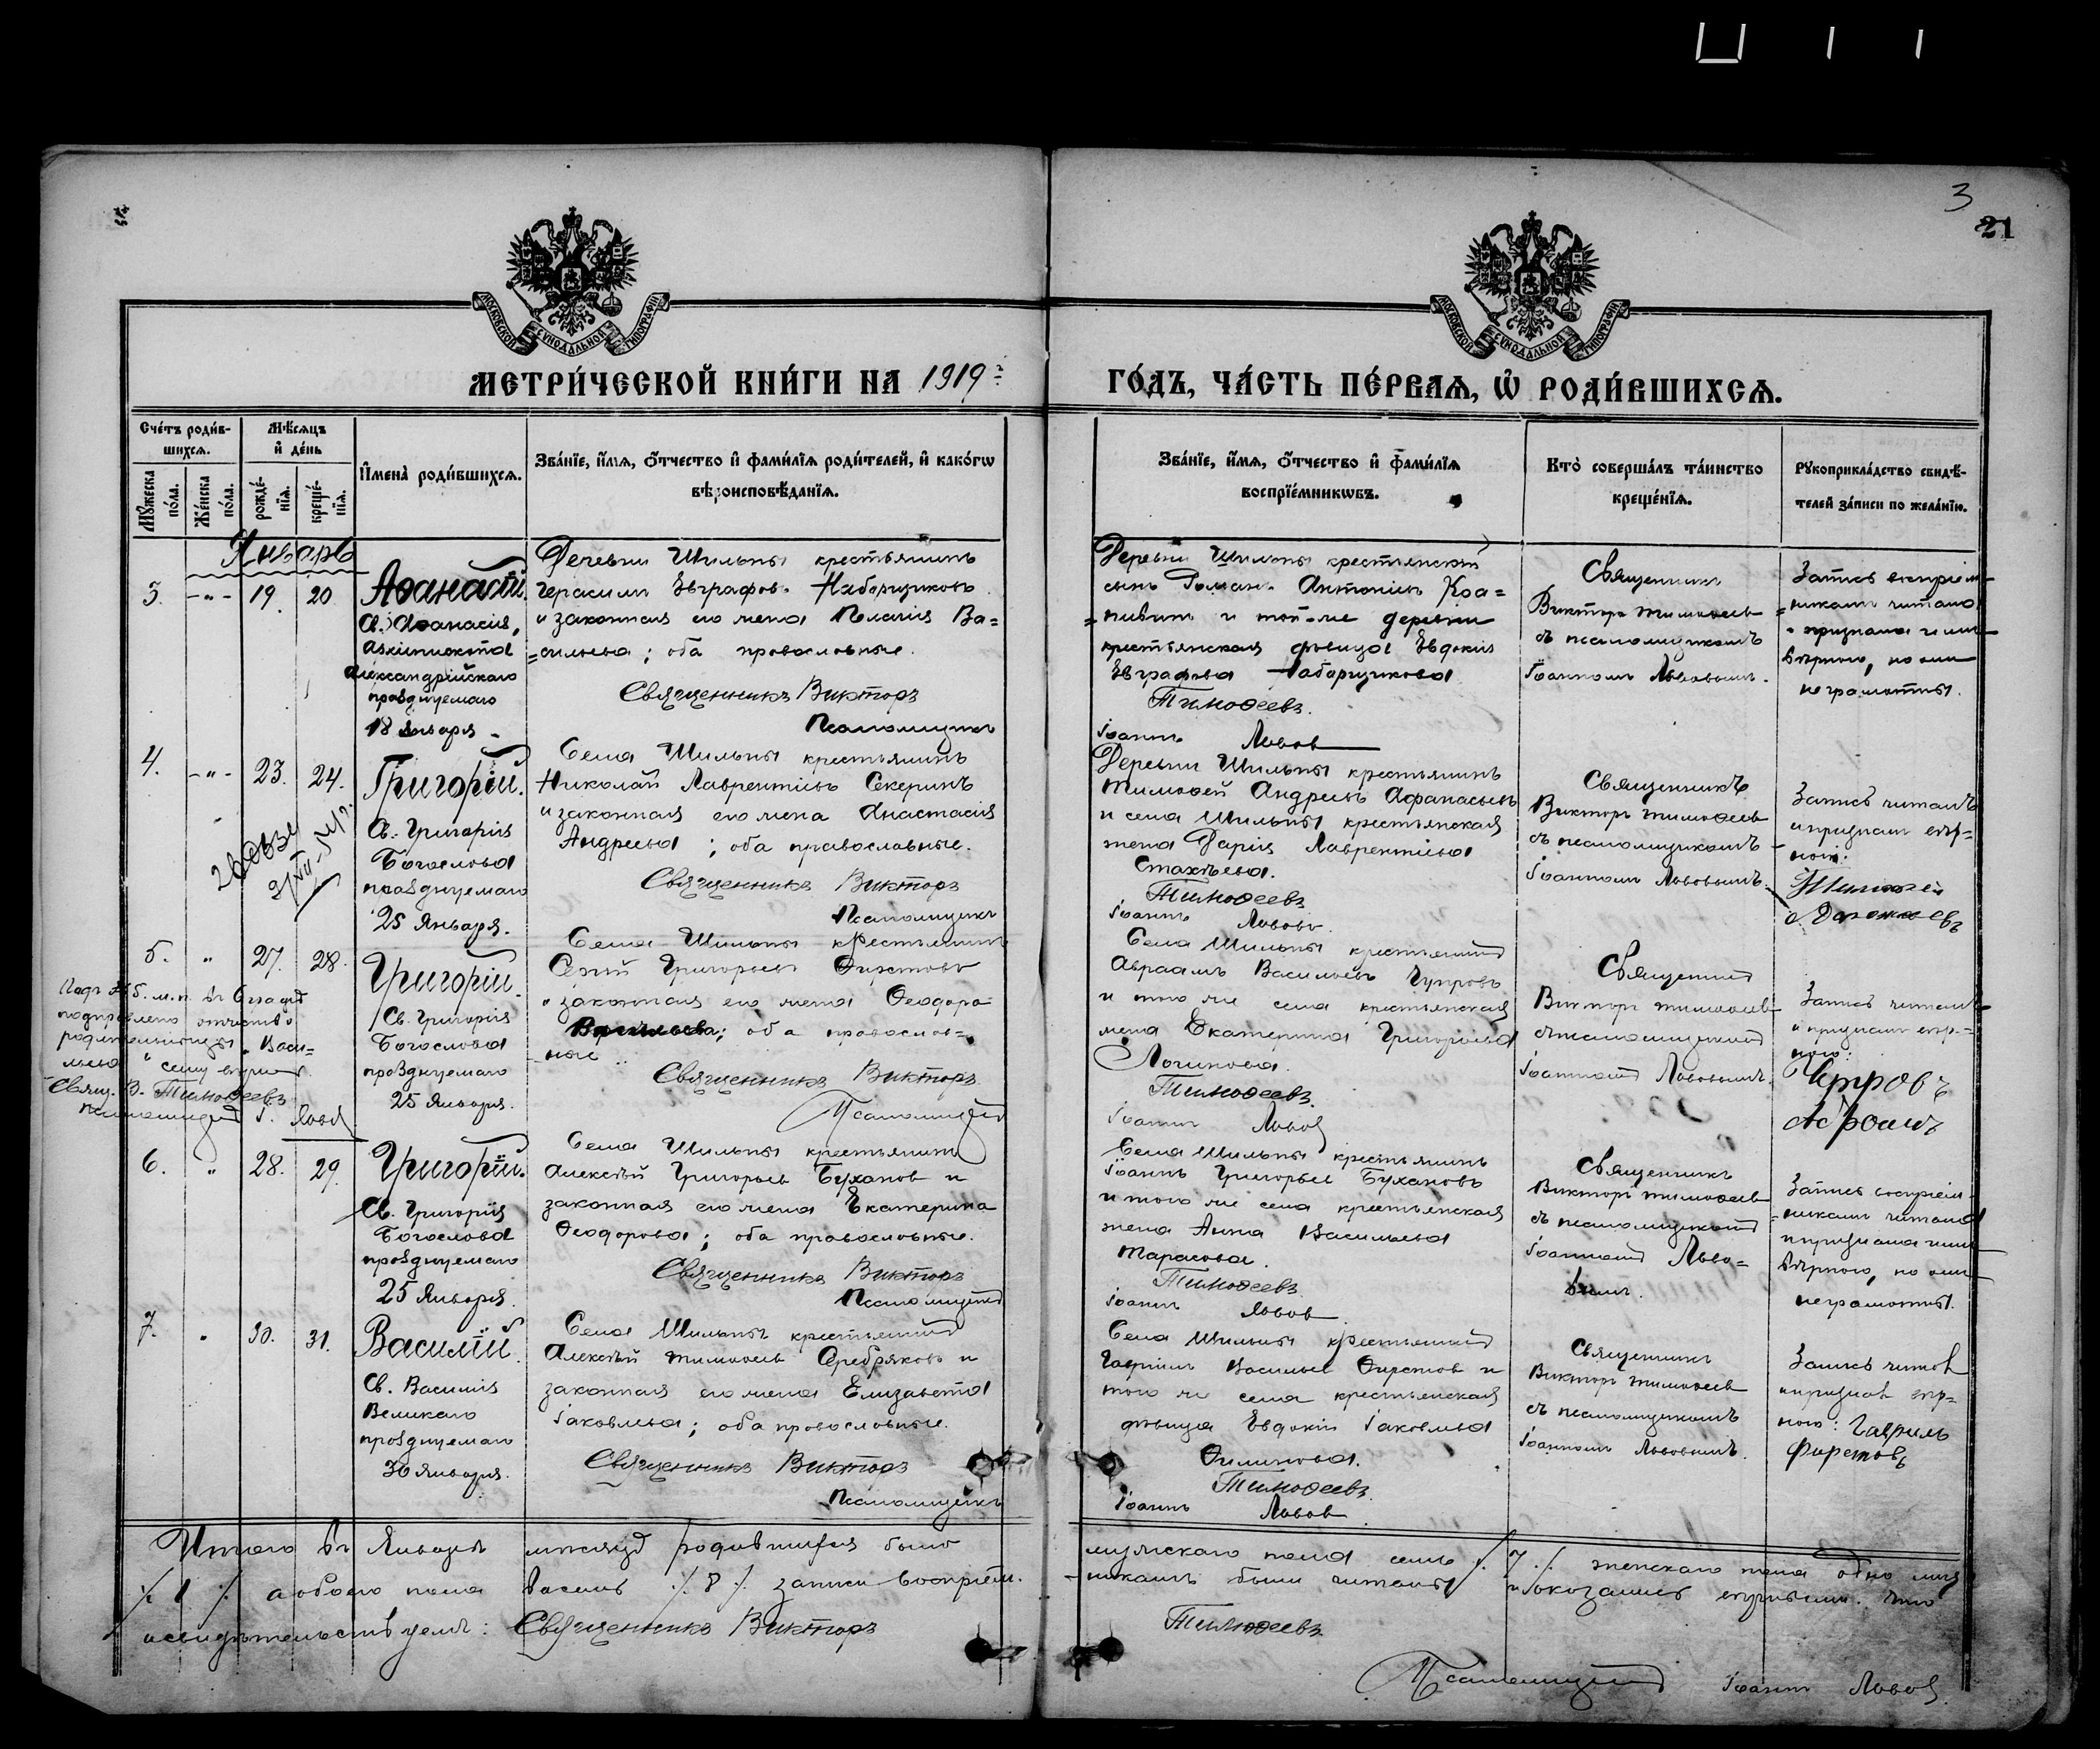 3
21
МОСКОВСКОЙ СѴНОДАЛЬНОЙ ТИПОГРАФІИ
МОСКОВСКОЙ СѴНОДАЛЬНОЙ ТИПОГРАФІИ
МЕТРИ́ЧЕСКОЙ КНИ́ГИ НА 1919 г.
ГО́ДЪ, ЧА́СТЬ ПЕ́РВАѦ, Ѡ҆ РОДИ́ВШИХСѦ.
Сче́тъ роди́в-
шихсѧ.
Мꙋжеска по́ла.
Же́нска по́ла.
Мѣ́сѧцъ
и҆ де́нь
рожде́-нїѧ.
креще́-нїѧ.
И҆мена̀ роди́вшихсѧ.
Зва́нїе, и҆́мѧ, ѻ҆́тчество и҆ фами́лїѧ роди́телей, и҆ како́гѡ
вѣроисповѣ́данїѧ.
Зва́нїе, и҆́мѧ, ѻ҆́тчество и҆ фами́лїѧ
воспрїе́мникѡвъ.
Кто̀ соверша́лъ та́инство
креще́нїѧ.
Рꙋкоприкла́дство свидѣ́-
телей за́писи по жела́нїю.
Январь
3. -"- 19. 20
Аѳанасій.
Св. Аѳанасія,
Архіепископа
Александрійскаго
празднуемаго
18 Января.
Деревни Шильны крестьянинъ
Герасимъ Евграфов. Наборщиковъ
и законная его жена Пелагія Ва=
=сильева; оба православные.
Священникъ Викторъ
Псаломщикъ
Деревни Шильны крестьянскій
сынъ Роман. Антоніевъ Кра=
и той-же деревни
крестьянская дѣвица Евдокія
Евграфова Наборщикова
Тимоѳеевъ.
Іоаннъ Львов
Священникъ
Викторъ Тимоѳеевъ
съ псаломщикомъ
Іоанномъ Львовымъ.
Запись воспріем-
=никамъ читана
и признана ими
вѣрною, но они
неграмотны.
4. -"- 23. 24.
Григорій.
Св. Григорія
Богослова
празднуемаго
25 Января.
Села Шильны крестьянинъ
Николай Лаврентіевъ Секеринъ
и законная его жена Анастасія
Андреева; оба православные.
Священникъ Викторъ
Псаломщикъ
Деревни Шильны крестьянинъ
Тимоѳей Андреевъ Афанасьевъ
и села Шильны крестьянская
жена Дарія Лаврентіева
Стахѣева.
Тимоѳеевъ
Іоаннъ Львовъ.
Священникъ
Викторъ Тимоѳеевъ
съ псаломщикомъ
Іоанномъ Львовымъ.
Запись читалъ
и призналъ вѣр=
ной:
5. " 27. 28.
Григорій.
Св. Григорія
Богослова
празднуемаго
25 Января.
Подъ № 5. м.п. въ 6 графѣ
подправлено отчество
родительницы „Васи=
льева“ сему вѣрить
Свящ. В. Тимоѳеевъ
Псаломщикъ І. Львов
Села Шильны крестьянинъ
Сергій Григорьевъ Ѳирстовъ
и законная его жена Ѳеодора
Васильева; оба православ=
ные.
Священникъ Викторъ
Псаломщикъ
Села Шильны крестьянинъ
Авраамъ Васильевъ Чупровъ
и того же села крестьянская
жена Екатерина Григорьева
Логинова.
Тимоѳеевъ.
Іоаннъ Львов
Священникъ
Викторъ Тимоѳеевъ
съ псаломщикомъ
Іоанномъ Львовымъ.
Запись читалъ
и призналъ вѣр=
ною:
6. " 28. 29.
Григорій.
Св. Григорія
Богослова
празднуемаго
25 Января.
Села Шильны крестьянинъ
Алексѣй Григорьев Бухановъ и
законная его жена Екатерина
Ѳеодорова; оба православные.
Священникъ Викторъ
Псаломщикъ
Села Шильны крестьянинъ
Іоаннъ Григорьев Бухановъ
и того же села крестьянская
жена Анна Васильева
Тарасова.
Тимоѳеевъ
Іоаннъ Львов
Священникъ
Викторъ Тимоѳеевъ
съ псаломщикомъ
Іоанномъ Льво=
вымъ.
Запись воспріем-
=никамъ читана
и признана ими
вѣрною, но они
неграмотны.
7. " 30. 31.
Василій.
Св. Василія
Великаго
празднуемаго
30 Января.
Села Шильны крестьянинъ
Алексѣй Тимоѳеевъ Серебряковъ и
законная его жена Елизавета
Іаковлева; оба православные.
Священникъ Викторъ
Псаломщикъ
Села Шильны крестьянинъ
Гавріилъ Васильев Ѳирстов и
того же села крестьянская
дѣвица Евдокія Іаковлева
Ѳилипова.
Тимоѳеевъ.
Іоаннъ Львов.
Священникъ
Викторъ Тимоѳеевъ
съ псаломщикомъ
Іоанномъ Львовымъ.
Запись читалъ
и призналъ вѣр=
ною: Гавриль
Фирстовъ
Итого въ Январѣ мѣсяцѣ родившихся было мужскаго пола семь ·/. 7 ·/. женскаго пола одно лицо
·/. 1 ·/. а обоего пола восемь ·/. 8 ·/. записи воспріем-никамъ были читаны и оказались вѣрными. что
и свидѣтельствуемъ: Священникъ Викторъ Тимоѳеевъ
Псаломщикъ Іоаннъ Львов